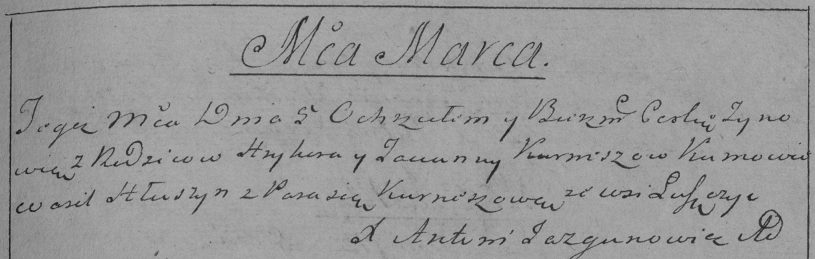 Mca Marca.
Tegoż Mca Dnia 5 Ochrzciłem y Bierzm Corkę Zyno
wią z Rodzicow Hryhora y Joanny Kurniszow Kumowie
Wasil Hłuszyn z Parasią Kurniszową ze wsi
X Antoni Jazgunowicz